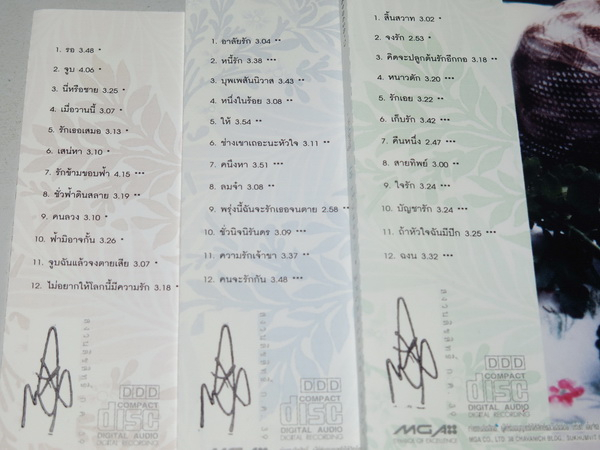 1. รอ 3.48 *
2. จูบ 4.06 *
3. นี่หรือชาย 3.25 *
4. เมื่อวานนี้ 3.07 *
5. รักเธอเสมอ 3.13 *
6. เสน่หา 3.10 *
7. รักข้ามขอบฟ้า 4.15 ***
8. ชั่วฟ้าดินสลาย 3.19 **
9. คนลวง 3.10 *
10. ฟ้ามิอาจกั้น 3.26 *
11. จูบฉันแล้วจงตายเสีย 3.07 *
12. ไม่อยากให้โลกนี้มีความรัก 3.18 *
สงวนลิขสิทธิ์ ก.ค. 39
DDD
COMPACT
disc
DIGITAL AUDIO
DIGITAL RECORDING
1. อาลัยรัก 3.04 **
2. หนี้รัก 3.38 ***
3. บุพเพสันนิวาส 3.43 ***
4. หนึ่งในร้อย 3.08 **
5. ให้ 3.54 **
6. ช่างเขาเถอะนะหัวใจ 3.11 **
7. คนึงหา 3.51 ***
8. ลมจ๋า 3.08 **
9. พรุ่งนี้ฉันจะรักเธอจนตาย 2.58 **
10. ชั่วนิจนิรันดร 3.09 ***
11. ความรักเจ้าขา 3.37 **
12. คนจะรักกัน 3.48 ***
สงวนลิขสิทธิ์ ก.ค. 39
DDD
COMPACT
disc
DIGITAL AUDIO
DIGITAL RECORDING
1. สิ้นสวาท 3.02 *
2. จงรัก 2.53 *
3. คิดจะปลูกต้นรักอีกกอ 3.18 **
4. หนาวตัก 3.20 ***
5. รักเอย 3.22 *
6. เก็บรัก 3.42 ***
7. คืนหนึ่ง 2.47 ***
8. สายทิพย์ 3.00 **
9. ใจรัก 3.24 **
10. บัญชารัก 3.24 ***
11. ถ้าหัวใจฉันมีปีก 3.25 ***
12. ฉงน 3.32 ***
สงวนลิขสิทธิ์ ก.ค. 39
DDD
COMPACT
disc
DIGITAL AUDIO
DIGITAL RECORDING
MGA